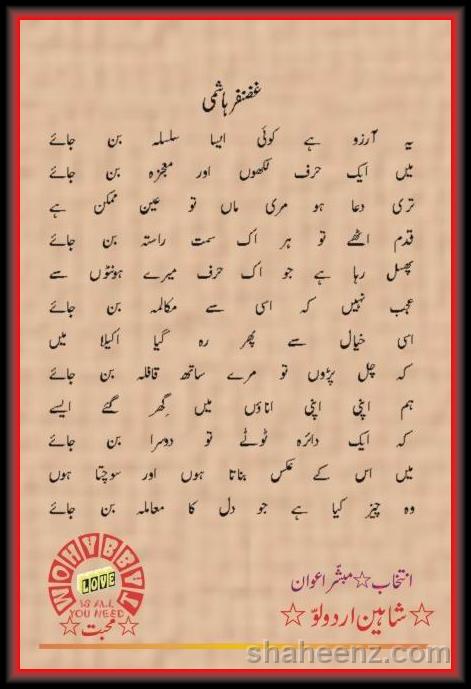 غضنفر ہاشمی
یہ آرزو ہے کوئی ایسا سلسلہ بن جائے
میں ایک حرف لکھوں اور معجزہ بن جائے
تری دعا ہو مری ماں تو عین ممکن ہے
قدم اٹھے تو ہر اک سمت راستہ بن جائے
پھسل رہا ہے جو اک حرف میرے ہونٹوں سے
عجب نہیں کہ اسی سے مکالمہ بن جائے
اسی خیال سے پھر رہ گیا اکیلا میں
کہ چل پڑوں تو مرے ساتھ قافلہ بن جائے
ہم اپنی اپنی اناؤں میں گھر گئے ایسے
کہ ایک دائرہ ٹوٹے تو دوسرا بن جائے
میں اس کے عکس بناتا ہوں اور سوچتا ہوں
وہ چیز کیا ہے جو دل کا معاملہ بن جائے
انتخاب☆مبشّر اعوان
☆شاہین اردو لوّ☆
LOVE
IS ALL
YOU NEED
☆محبت☆
shaheenz.com